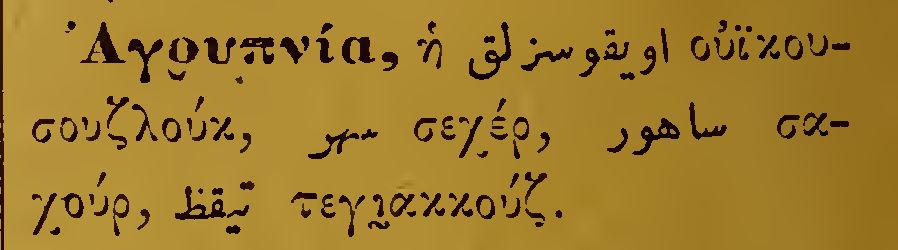 Ἀγρυπνία, ἡ اویقوسزلق οὐϊκου-
σουζλούκ, سهر σεχ̣έρ, ساهور σα-
χ̣ούρ, تیقظ τεγιακκούζ.